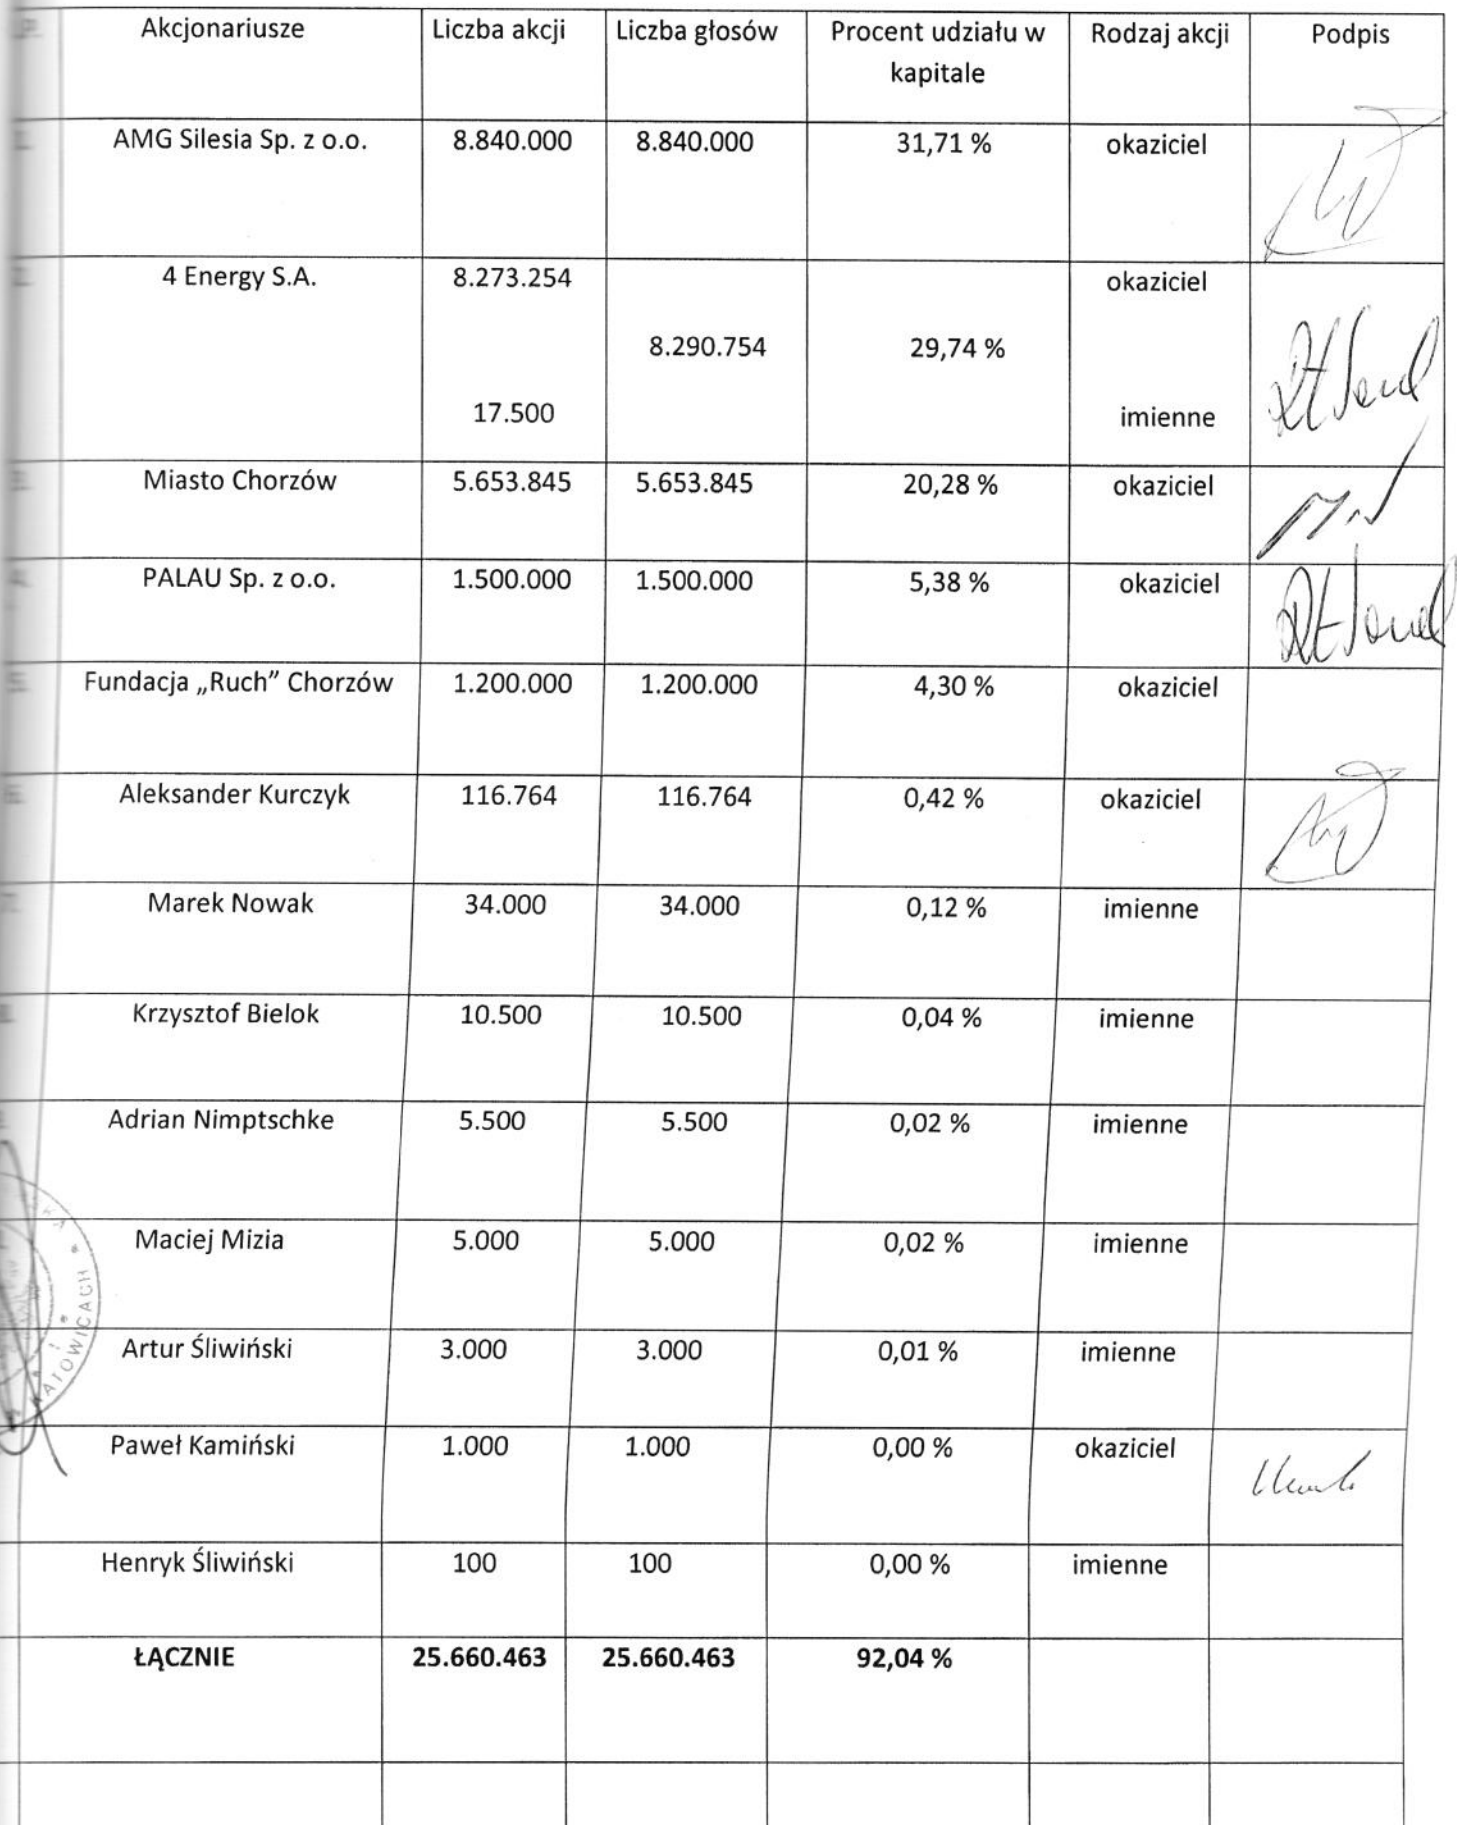 Akcjonariusze Liczba akcji Liczba głosów Procent udziału w kapitale Rodzaj akcji Podpis
AMG Silesia Sp. z o.o. 8.840.000 8.840.000 31,71 % okaziciel
4 Energy S.A. 8.273.254 okaziciel
8.290.754 29,74 %
17.500 imienne
Miasto Chorzów 5.653.845 5.653.845 20,28 % okaziciel
PALAU Sp. z o.o. 1.500.000 1.500.000 5,38 % okaziciel
Fundacja „Ruch” Chorzów 1.200.000 1.200.000 4,30 % okaziciel
Aleksander Kurczyk 116.764 116.764 0,42 % okaziciel
Marek Nowak 34.000 34.000 0,12 % imienne
Krzysztof Bielok 10.500 10.500 0,04 % imienne
Adrian Nimptschke 5.500 5.500 0,02 % imienne
Maciej Mizia 5.000 5.000 0,02 % imienne
Artur Śliwiński 3.000 3.000 0,01 % imienne
Paweł Kamiński 1.000 1.000 0,00 % okaziciel
Henryk Śliwiński 100 100 0,00 % imienne
ŁĄCZNIE 25.660.463 25.660.463 92,04 %
KATOWICACH